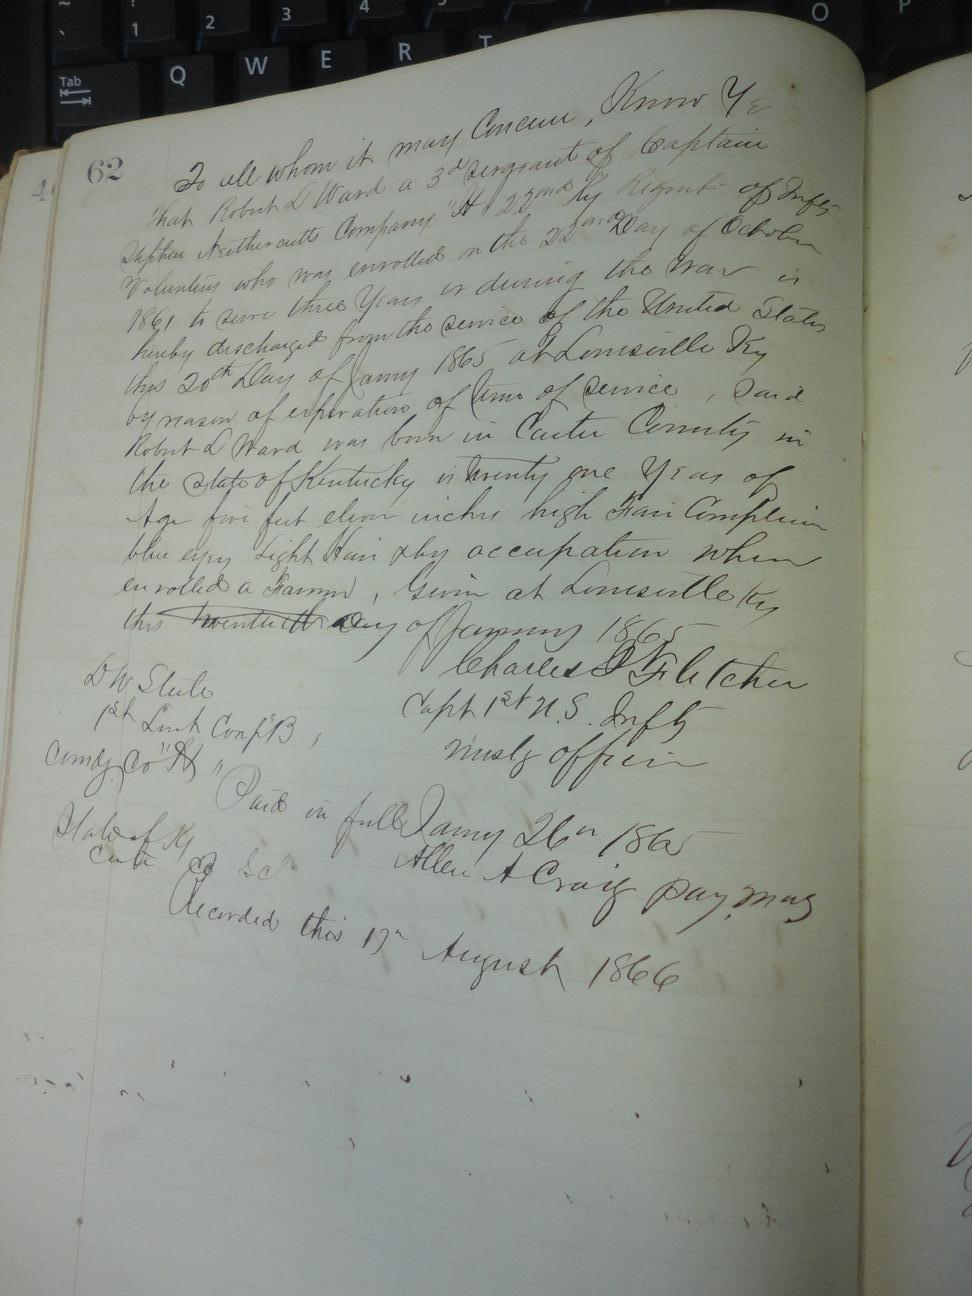 ~ 1 2 3 4 5 O P
` Tab Q W E R T
4
62
To all whom it may Concern, Know Ye
that Robert L Ward a 3rd Sergeant of Captain
Stephen Nethercutts Company "H" 22nd Ky Regmt of Infty
Volunteers who was enrolled on the 22nd Day of October
1861 to serve three Years or during the War is
hereby discharged from the service of the United States
this 20th Day of Jany 1865 at Louisville Ky
by reason of expiration of time of service, Said
Robert L Ward was born in Carter County in
the state of Kentucky is twenty one Years of
Age five feet eleven inches high Fair Complexion
blue eyes Light Hair & by occupation when
enrolled a Farmer, Given at Louisville Ky
this twentieth Day of January 1865
Charles Fletcher
D W
Capt 1st U.S. Infty
1st Lieut Comp "B",
Musty officer
Comdg Co "H"
Paid in full Jany 26th 1865
State of Ky
Allen A Craig pay, mas
Recorded this 17th August 1866